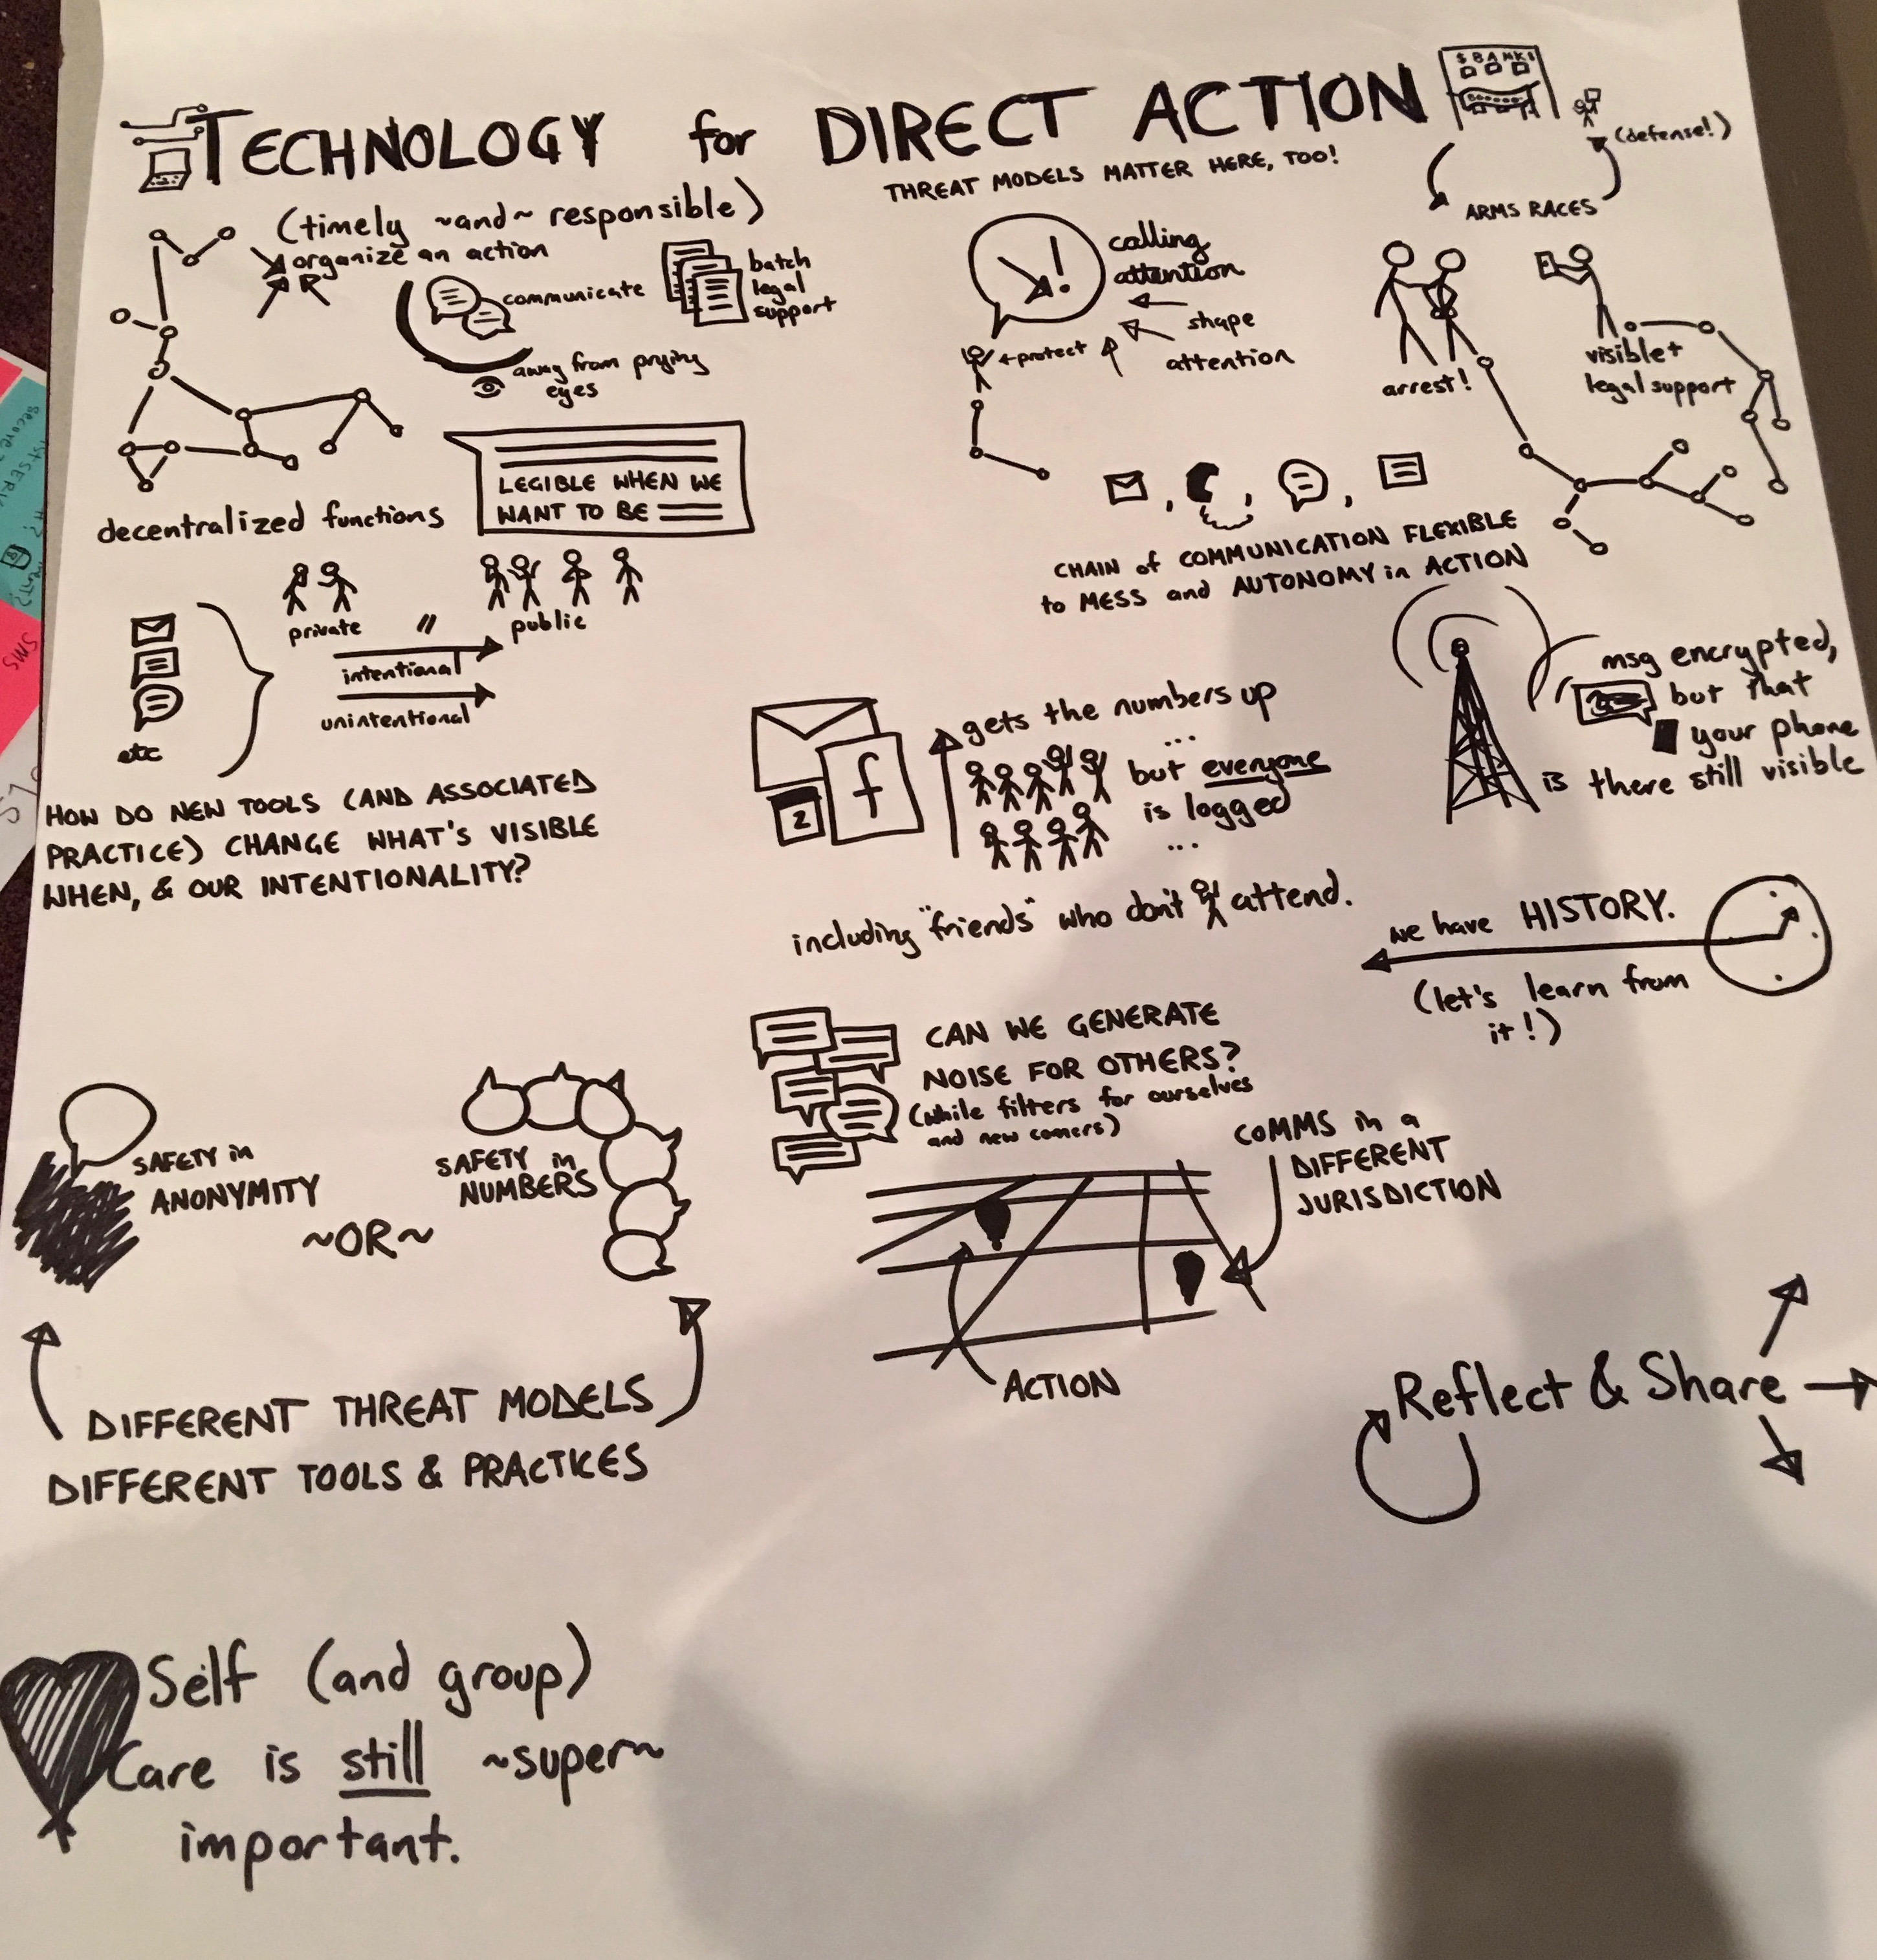 TECHNOLOGY for DIRECT ACTION
$ BANK $
(defense!)
THREAT MODELS MATTER HERE, TOO!
ARMS RACES
(timely ~and~ responsible)
organize an action
communicate
batch
legal
support
away from prying
eyes
decentralized functions
LEGIBLE WHEN WE
WANT TO BE
!
calling
attention
shape
attention
protect
arrest!
visible +
legal support
CHAIN of COMMUNICATION FLEXIBLE
to MESS and AUTONOMY in ACTION
private
public
intentional
unintentional
etc
HOW DO NEW TOOLS (AND ASSOCIATED
PRACTICE) CHANGE WHAT'S VISIBLE
WHEN, & OUR INTENTIONALITY?
f
2
gets the numbers up
...
but everyone
is logged
...
including "friends" who don't attend.
msg encrypted,
but that
your phone
is there still visible
we have HISTORY.
(let's learn from
it!)
CAN WE GENERATE
NOISE FOR OTHERS?
(while filters for ourselves
and new comers)
COMMS in a
DIFFERENT
JURISDICTION
ACTION
SAFETY in
ANONYMITY
~OR~
SAFETY in
NUMBERS
DIFFERENT THREAT MODELS
DIFFERENT TOOLS & PRACTICES
Reflect & Share
Self (and group)
Care is still ~super~
important.
SMS